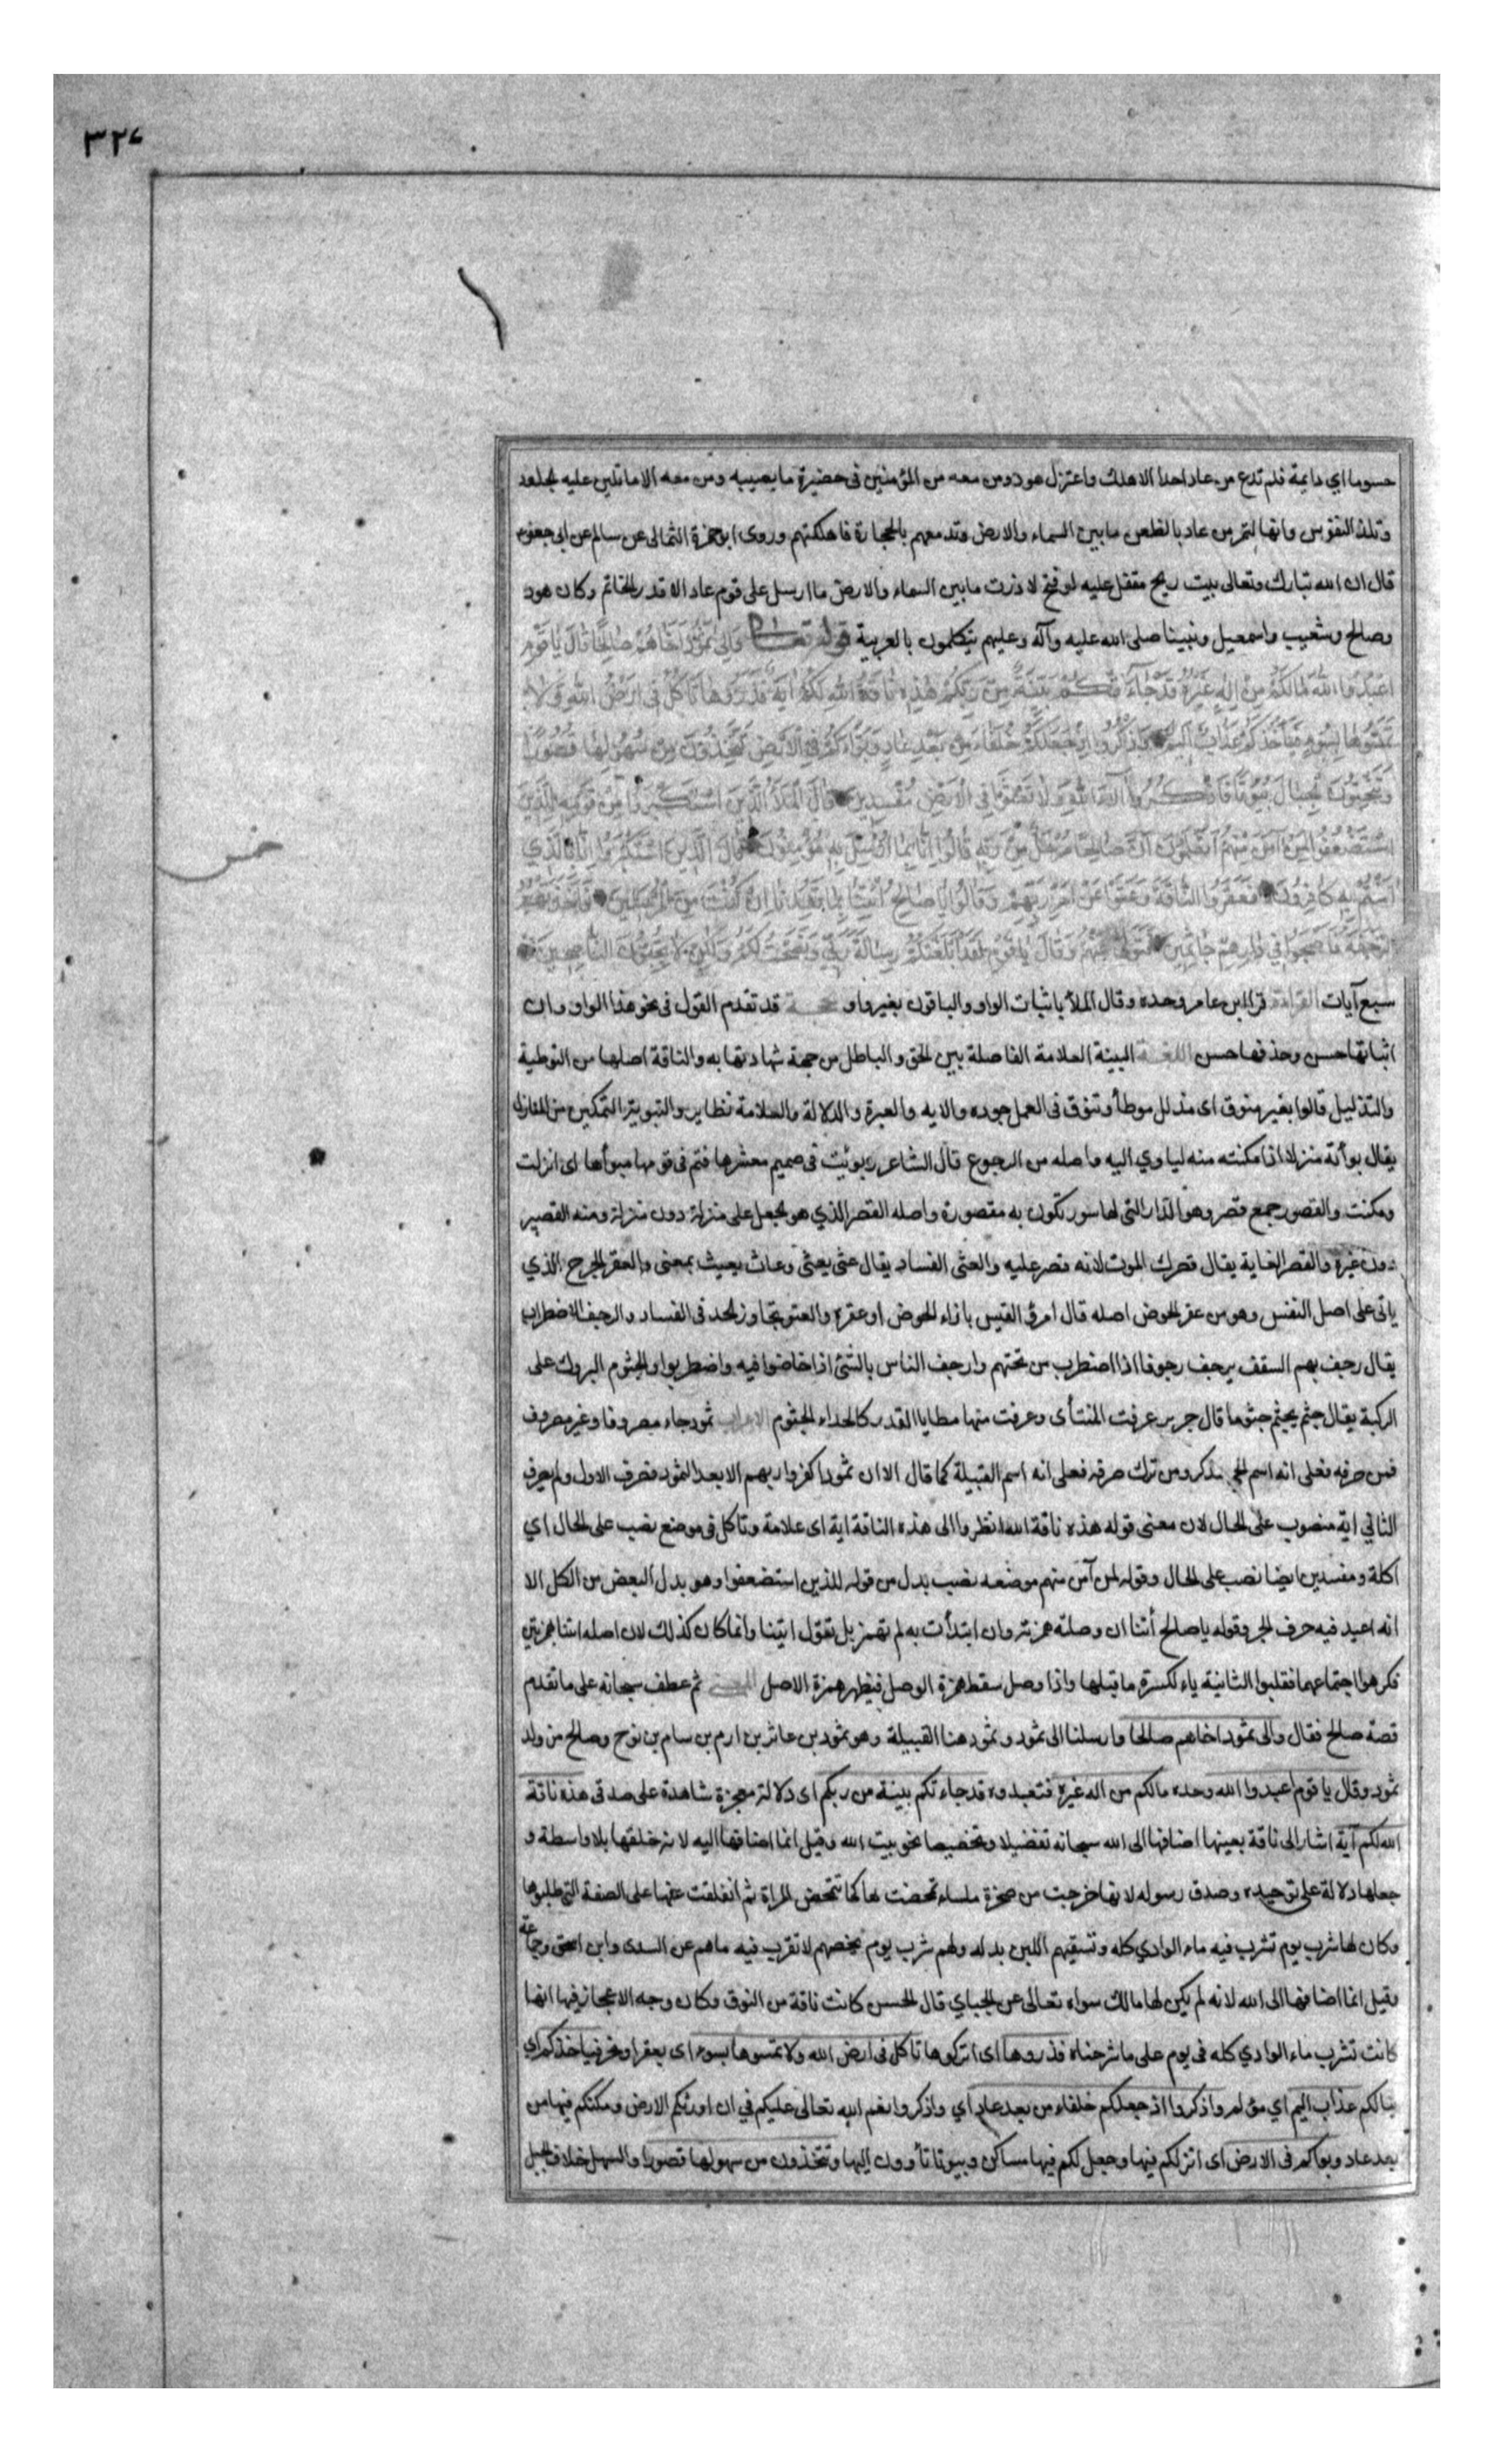 ٣٢٤
حسوما اي دايمة فلم تدع من عاد احدا الا هلك واعتزل هود ومن معه من المؤمنين فى حضيرة ما يصيبه ومن معه الا ما تلين عليه الجلود
وتلتذ النفوس وانها لتمر من عاد بالظعن ما بين السماء والارض وتدمغهم بالحجارة فاهلكتهم وروى ابو حمزة الثمالى عن سالم عن ابى جعفر
قال ان الله تبارك وتعالى بيت ريح مقفل عليه لو فتح لاذرت ما بين السماء والارض ما ارسل على قوم عاد الا قدر الخاتم وكان هود
وصالح وشعيب واسمعيل ونبينا صلى الله عليه وآله وعليهم يتكلمون بالعربية قوله تعالى وَاِلىٰ ثَمُودَ اَخَاهُمْ صَالِحًا قَالَ يَا قَوْمِ
اعْبُدُوا اللهَ مَا لَكُمْ مِنْ اِلٰهٍ غَيْرُهُ قَدْ جَاءَتْكُمْ بَيِّنَةٌ مِنْ رَبِّكُمْ هٰذِهِ نَاقَةُ اللهِ لَكُمْ اٰيَةً فَذَرُوهَا تَأكُلْ فِى اَرْضِ اللهِ وَلَا
تَمَسُّوهَا بِسُوءٍ فَيَأخُذَكُمْ عَذَابٌ اَلِيمٌ وَاذْكُرُوا اِذْ جَعَلَكُمْ خُلَفَاءَ مِنْ بَعْدِ عَادٍ وَبَوَّأَكُمْ فِى الْاَرْضِ تَتَّخِذُونَ مِنْ سُهُولِهَا قُصُورًا
وَتَنْحِتُونَ الْجِبَالَ بُيُوتًا فَاذْكُرُوا اٰلَاءَ اللهِ وَلَا تَعْثَوْا فِى الْاَرْضِ مُفْسِدِينَ قَالَ الْمَلَأُ الَّذِينَ اسْتَكْبَرُوا مِنْ قَوْمِهِ لِلَّذِينَ
اسْتُضْعِفُوا لِمَنْ اٰمَنَ مِنْهُمْ اَتَعْلَمُونَ اَنَّ صَالِحًا مُرْسَلٌ مِنْ رَبِّهِ قَالُوا اِنَّا بِمَا اُرْسِلَ بِهِ مُؤْمِنُونَ قَالَ الَّذِينَ اسْتَكْبَرُوا اِنَّا بِالَّذِى
اٰمَنْتُمْ بِهِ كَافِرُونَ فَعَقَرُوا النَّاقَةَ وَعَتَوْا عَنْ اَمْرِ رَبِّهِمْ وَقَالُوا يَا صَالِحُ ائْتِنَا بِمَا تَعِدُنَا اِنْ كُنْتَ مِنَ الْمُرْسَلِينَ فَاَخَذَتْهُمُ
الرَّجْفَةُ فَاَصْبَحُوا فِى دَارِهِمْ جَاثِمِينَ فَتَوَلّٰى عَنْهُمْ وَقَالَ يَا قَوْمِ لَقَدْ اَبْلَغْتُكُمْ رِسَالَةَ رَبِّى وَنَصَحْتُ لَكُمْ وَلٰكِنْ لَا تُحِبُّونَ النَّاصِحِينَ
سبع آيات القراءة قرا ابن عامر وحده وقال الملأ باثبات الواو والباقون بغير واو الحجة قد تقدم القول فى نحو هذا الواو وان
اثباتها حسن وحذفها حسن اللغة البينة العلامة الفاصلة بين الحق والباطل من جهة شهادتها به والناقة اصلها من التوطية
والتذليل قالوا بعير منوق اى مذلل موطأ وتنوق فى العمل جوده والايه والعبرة والدلالة والعلامة نظاير والتبوية التمكين من المنازل
يقال بوأته منزلا اذا مكنته منه لياوي اليه واصله من الرجوع قال الشاعر وبوئيت فى صميم معشرها فتم فى قومها مبوأها اى انزلت
ومكنت والقصور جمع قصر وهو الدار التى لها سور تكون به مقصورة واصله القصر الذي هو الجعل على منزلة دون منزلة ومنه القصير
دون غيره والقصر الغاية يقال قصرك الموت لانه قصر عليه والعثى الفساد يقال عثى يعثى وعاث يعيث بمعنى والعقر الجرح الذي
ياتى على اصل النفس وهو من عقر الحوض اصله قال امرؤ القيس بازاء الحوض او عقره والعتو تجاوز الحد فى الفساد والرجف الاضطراب
يقال رجف بهم السقف يرجف رجوفا اذا اضطرب من تحتهم وارجف الناس بالشئ اذا خاضوا فيه واضطربوا والجثوم البروك على
الركبة يقال جثم يجثم جثوما قال جرير عرفت المنتأى وعرفت منها مطايا القدر كالحداء الجثوم الاعراب ثمود جاء مصروفا وغير مصروف
فمن صرفه فعلى انه اسم الحي مذكر ومن ترك صرفه فعلى انه اسم القبيلة كما قال الا ان ثمودا كفروا ربهم الا بعدا لثمود فصرف الاول ولم يصرف
الثاني اية منصوب على الحال لان معنى قوله هذه ناقة الله انظروا الى هذه الناقة اية اى علامة وتاكل فى موضع نصب على الحال اي
اكلة ومفسدين ايضا نصب على الحال وقوله لمن آمن منهم موضعه نصب بدل من قوله للذين استضعفوا وهو بدل البعض من الكل الا
انه اعيد فيه حرف الجر وقوله يا صالح أئتنا ان وصلته همزته وان ابتدأت به لم تهمز بل تقول ايتنا وانما كان كذلك لان اصله ائتنا بهمزتين
فكرهوا اجتماعهما فقلبوا الثانية ياء لكسرة ما قبلها واذا وصل سقط همزة الوصل فيظهر همزة الاصل المعنى ثم عطف سبحانه على ما تقدم
قصة صالح فقال والى ثمود اخاهم صالحا وارسلنا الى ثمود وثمود هنا القبيلة وهو ثمود بن عاثر بن ارم بن سام بن نوح وصالح من ولد
ثمود وقال يا قوم اعبدوا الله وحده مالكم من اله غيره فتعبدوه قد جاءتكم بينة من ربكم اى دلالة معجزة شاهدة على صدقى هذه ناقة
الله لكم آية اشار الى ناقة بعينها اضافها الى الله سبحانه تفضيلا وتخصيصا نحو بيت الله وقيل انما اضافها اليه لانه خلقها بلا واسطة و
جعلها دلالة على توحيده وصدق رسوله لانها خرجت من صخرة ملساء تمخضت بها كما تتمخض المراة ثم انفلقت عنها على الصفة التى طلبوها
وكان لها شرب يوم تشرب فيه ماء الوادي كله وتسقيهم اللبن بدله ولهم شرب يوم يخصهم لا تقرب فيه ماهم عن السدى وابن اسحق وجماعة
وقيل انما اضافها الى الله لانه لم يكن لها مالك سواه تعالى عن الجباي قال الحسن كانت ناقة من النوق وكان وجه الاعجاز فيها انها
كانت تشرب ماء الوادي كله فى يوم على ما شرحناه فذروها اى اتركوها تاكل فى ارض الله ولا تمسوها بسوء اى بعقر او نحر فياخذكم اي
ينالكم عذاب اليم اي مؤلم واذكروا اذ جعلكم خلفاء من بعد عاد اي واذكروا نعم الله تعالى عليكم في ان اورثكم الارض ومكنكم فيها من
بعد عاد وبواكم فى الارض اى انزلكم فيها وجعل لكم فيها مساكن وبيوتا تأوون اليها وتتخذون من سهولها قصورا والسهل خلاف الجبل